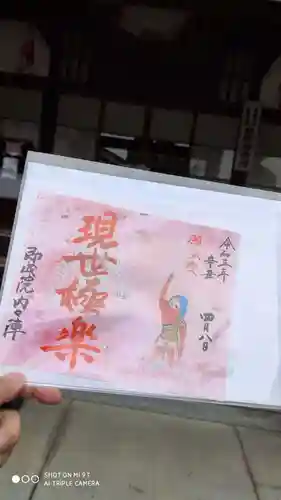 令和三年
辛丑
四月八日
現世極楽
即成院内陣
SHOT ON MI 9T
AI TRIPLE CAMERA